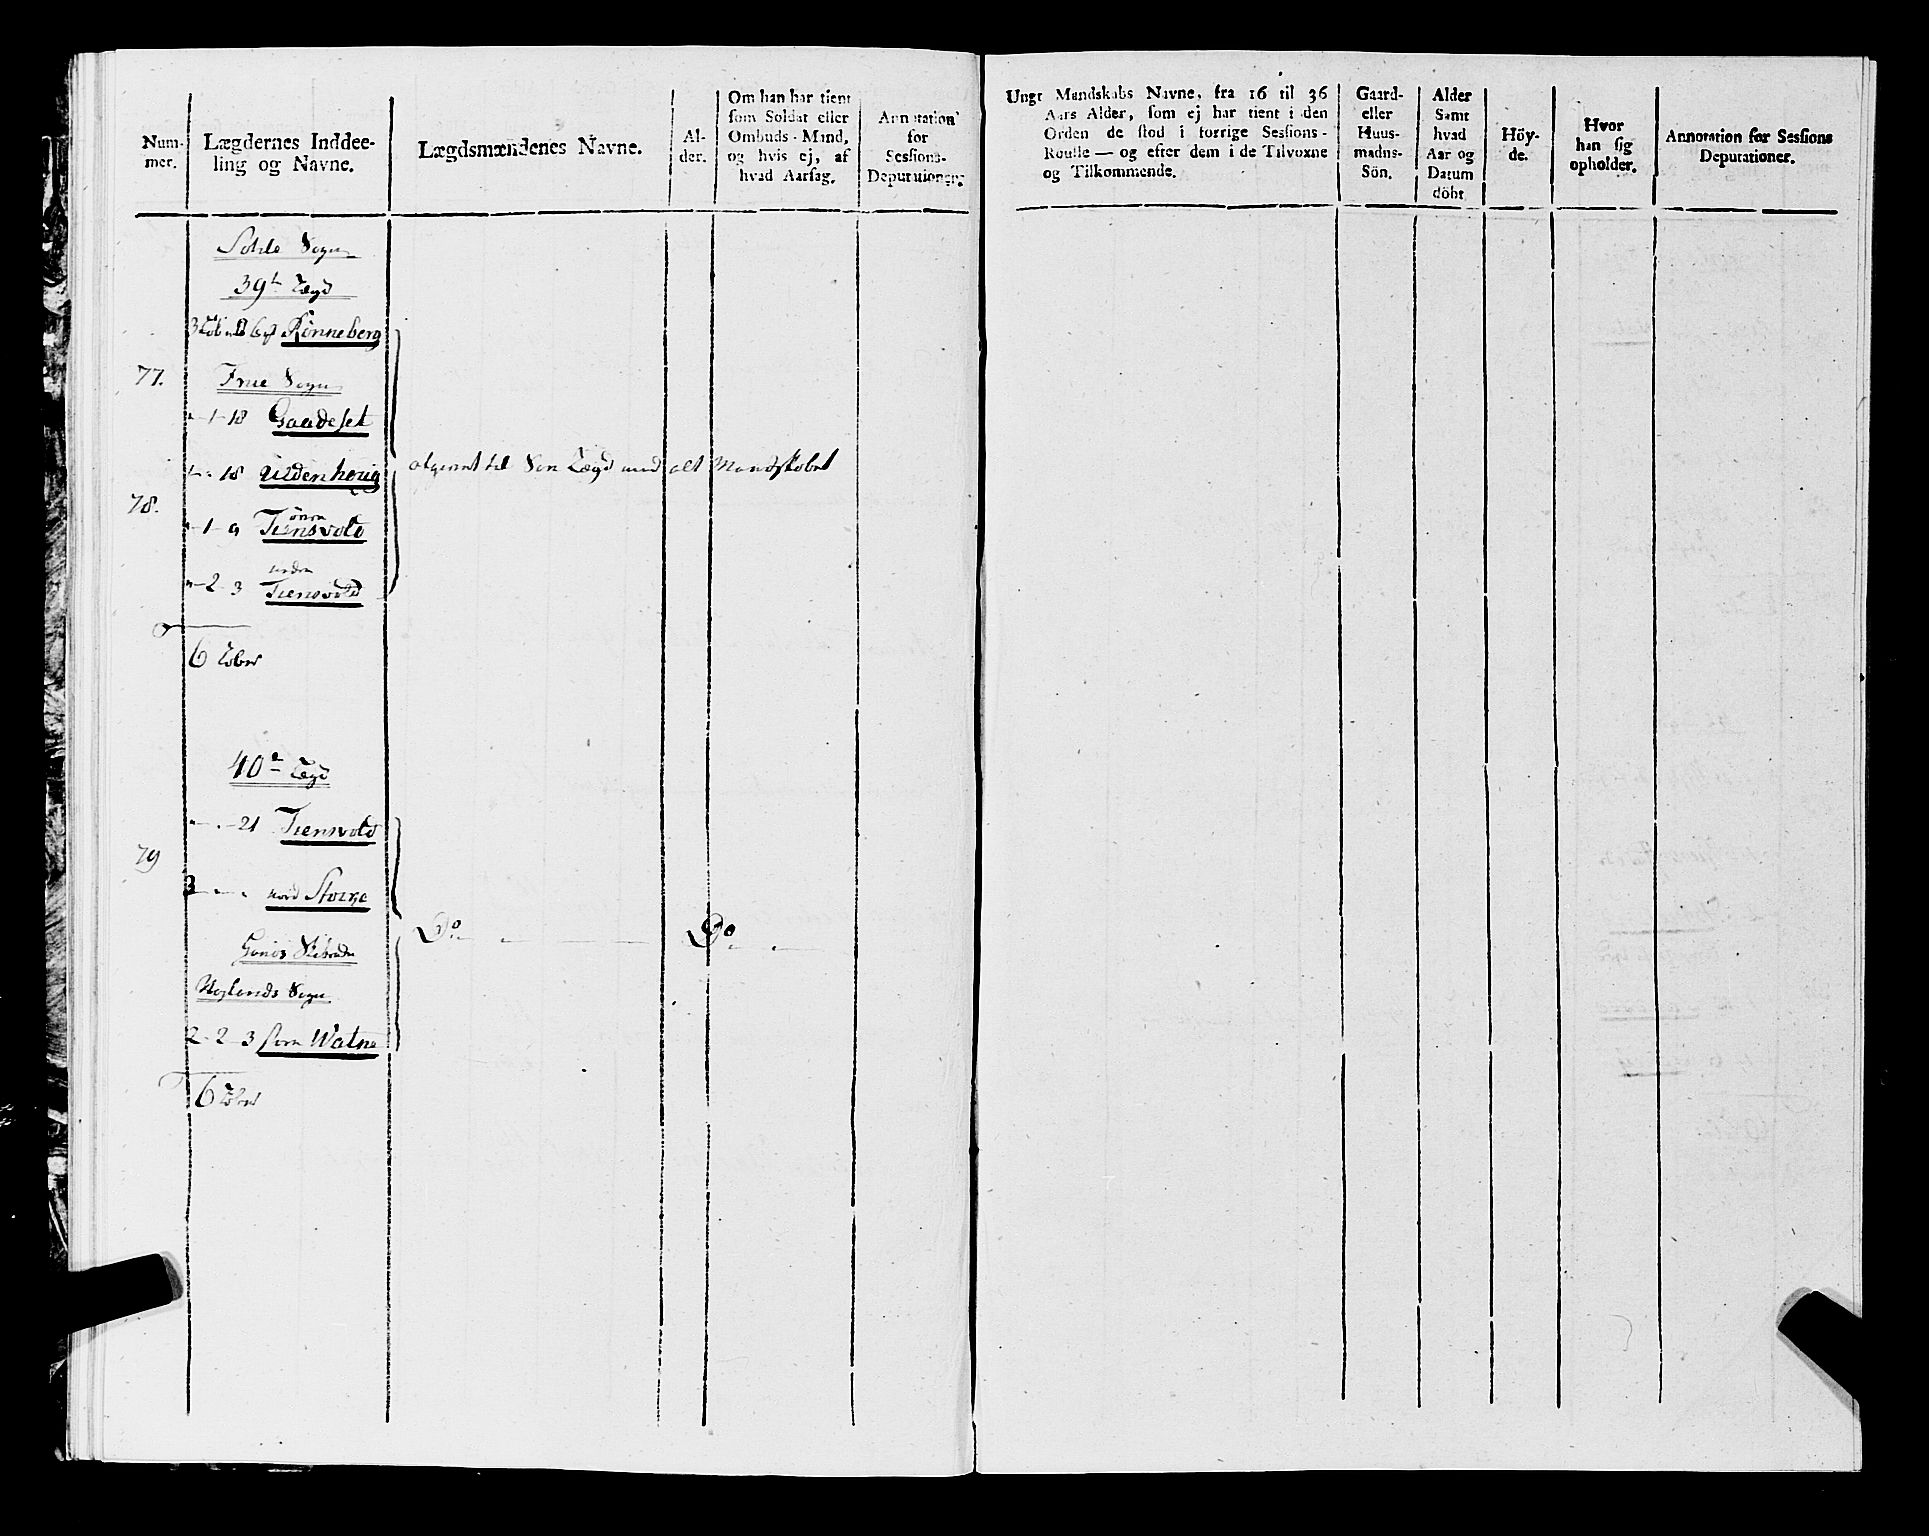 Num-
mer.
Lægdernes Inddee-
ling og Navne.
Lægdsmændenes Navne.
Al-
der.
Om han har tient
som Soldat eller
Ombuds-Mand,
og hvis ej, af
hvad Aarsag.
Annotation
for
Sessions-
Deputationen.
Sohle Sogn
39te Lægd
Rönneberg
77.
Frue Sogn
1 - 18 Gaadeset
1 - 18 Uldenhoug
78.
1 - 9 Tiensvold
2 - 3 Tiensvold
6 Løber
40de Lægd
21 Tiensvold
79
3 nord Stocke
Høylands Sogn
2 - 2 - 3 Watne
6 Løber
til Lægd med alt Mandskabet
Do Do
Ungt Mandskabs Navne, fra 16 til 36
Aars Alder, som ej har tient i den
Orden de stod i forrige Sessions-
Roulle — og efter dem i de Tilvoxne
og Tilkommende.
Gaard-
eller
Huus-
mands-
Sön.
Alder
Samt
hvad
Aar og
Datum
döbt.
Höy-
de.
Hvor
han sig
opholder.
Annotation for Sessions
Deputationer.